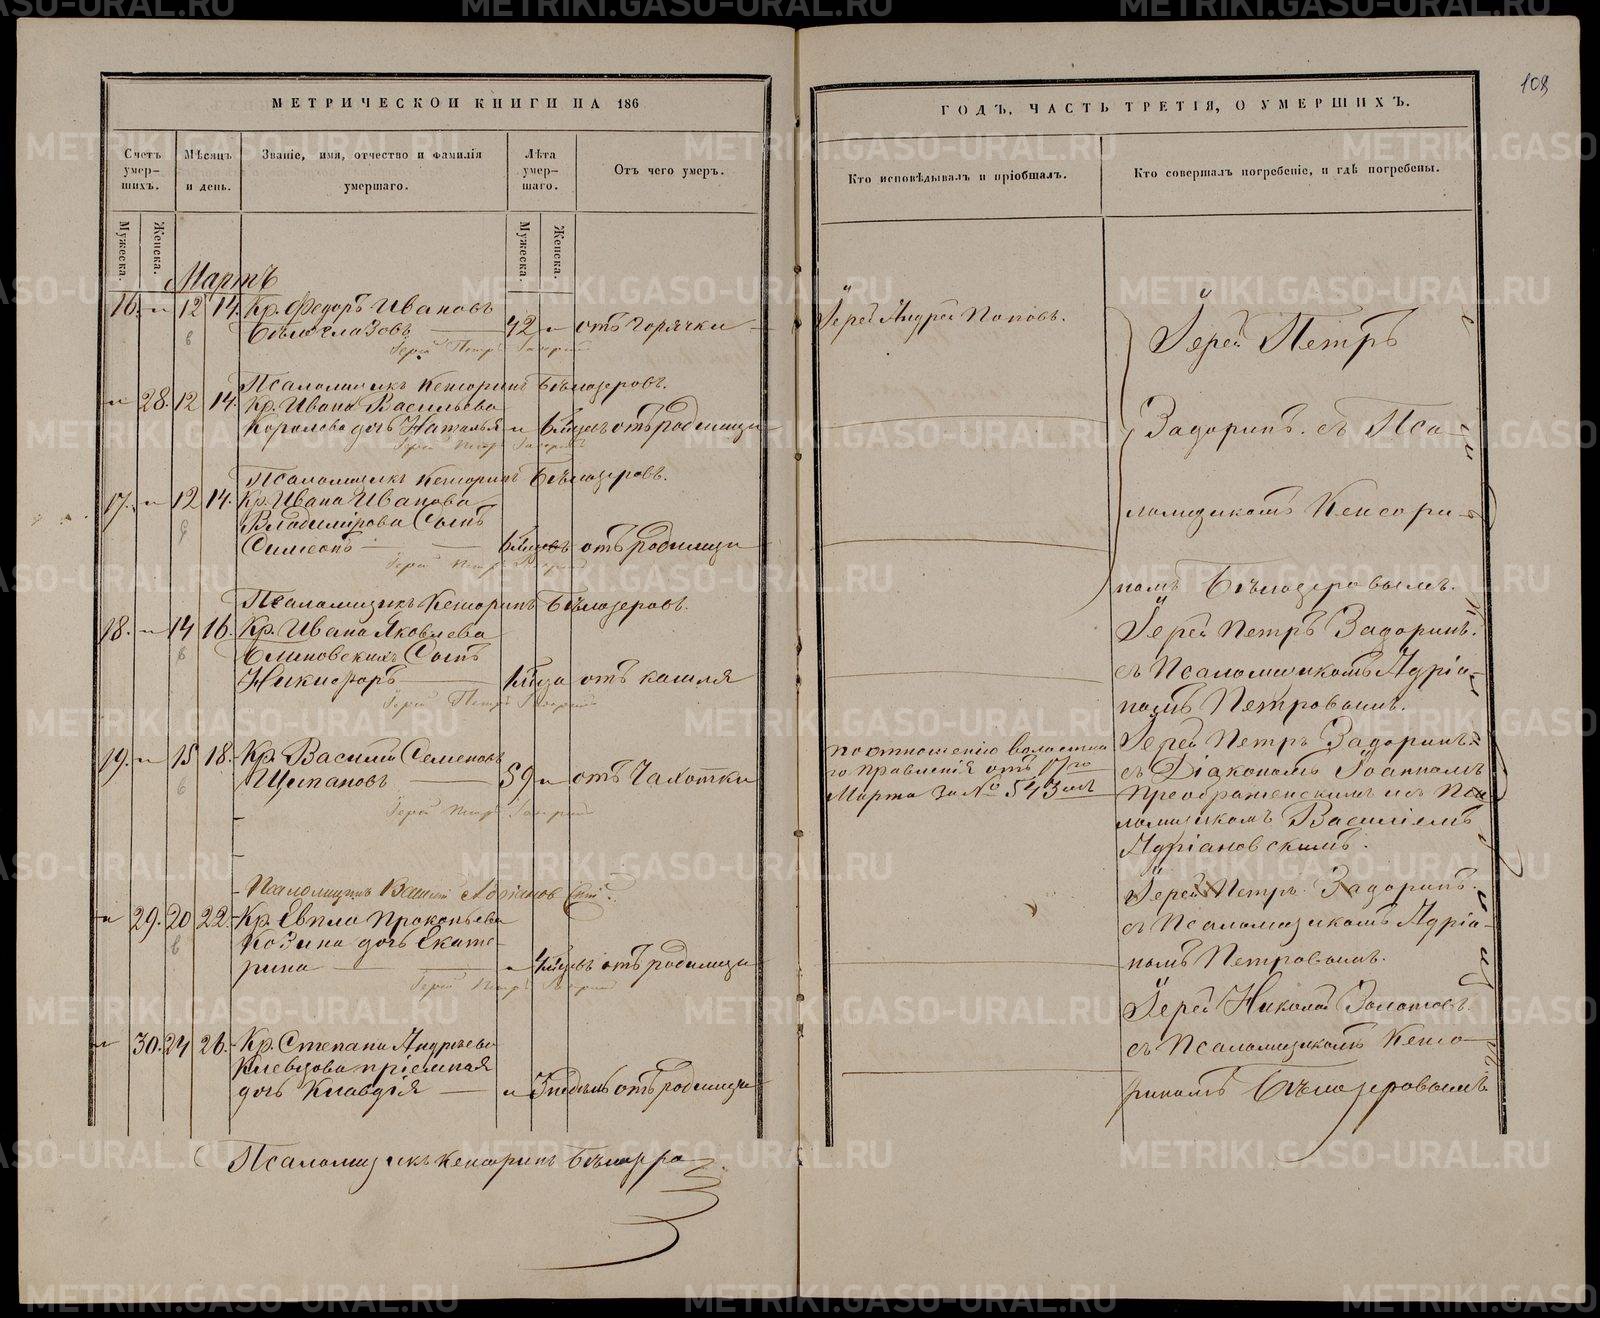 108
МЕТРИЧЕСКОЙ КНИГИ НА 186
Счетъ умер- шихъ.
Мѣсяцъ и день.
Званіе, имя, отчество и фамилія умершаго.
Лѣта умер- шаго.
Отъ чего умеръ.
Мужеска.
Женска.
Мужеска.
Женска.
Мартъ
16. " 12 14. Кр. Федоръ Ивановъ
Бѣлоглазовъ 42 " отъ горячки
Іерей Петръ Задоринъ
Псаломщикъ Кенсоринъ Бѣлозеровъ.
" 28. 12 14. Кр. Ивана Васильева
Королева дочь Наталья " отъ родимца
Іерей Петръ Задоринъ
Псаломщикъ Кенсоринъ Бѣлозеровъ.
17. " 12 14. Кр. Ивана Иванова
Владимірова Сынъ
Симеонъ отъ родимца
Іерей Петръ Задоринъ
Псаломщикъ Кенсоринъ Бѣлозеровъ.
18. " 14 16. Кр. Ивана Яковлева
Сынъ
Никифоръ отъ кашля
Іерей Петръ Задоринъ
19. " 15 18. Кр. Василій Семеновъ
Щипановъ 59 " отъ Чахотки
Іерей Петръ Задоринъ
Псаломщикъ Василій
" 29. 20 22. Кр. Евпла Прокопьева
Козина дочь Екате-
рина " отъ родимца
Іерей Петръ Задоринъ
" 30. 24 26. Кр. Степана Андреева
Киевцова пріемная
дочь Клавдія " 3 недѣль отъ родимца
Псаломщикъ Кенсоринъ
ГОДЪ, ЧАСТЬ ТРЕТІЯ, О УМЕРШИХЪ.
Кто исповѣдывалъ и пріобщалъ.
Кто совершалъ погребеніе, и гдѣ погребены.
Іерей Андрей Поповъ.
Іерей Петръ
Задоринъ. съ Пса-
ломщикомъ Кенсори-
номъ Бѣлозеровымъ.
Іерей Петръ Задоринъ.
съ Псаломщикомъ Адріа-
номъ Петровымъ.
по отношенію волостна
го Правленія отъ 17го
Марта за № 543мъ
Іерей Петръ Задоринъ
съ Діакономъ Іоанномъ
Преображенскимъ и съ Пса
ломщикомъ Василіемъ
Адріановскимъ.
Іерей Петръ Задоринъ.
съ Псаломщикомъ Адріа-
номъ Петровымъ.
Іерей Николай Золотовъ
съ Псаломщикомъ Кенсо-
риномъ Бѣлозеровымъ
METRIKI.GASO-URAL.RU